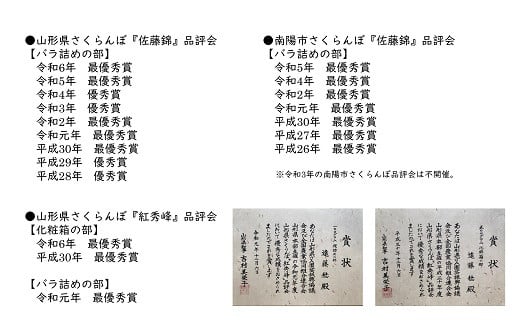 ●山形県さくらんぼ『佐藤錦』品評会
【バラ詰めの部】
令和6年　最優秀賞
令和5年　最優秀賞
令和4年　優秀賞
令和3年　優秀賞
令和2年　最優秀賞
令和元年　最優秀賞
平成30年　最優秀賞
平成29年　優秀賞
平成28年　優秀賞
●山形県さくらんぼ『紅秀峰』品評会
【化粧箱の部】
令和6年　最優秀賞
平成30年　最優秀賞
【バラ詰めの部】
令和元年　最優秀賞
●南陽市さくらんぼ『佐藤錦』品評会
【バラ詰めの部】
令和5年　最優秀賞
令和4年　最優秀賞
令和2年　最優秀賞
令和元年　最優秀賞
平成30年　最優秀賞
平成27年　最優秀賞
平成26年　最優秀賞
※令和3年の南陽市さくらんぼ品評会は不開催。
賞状
遠藤　殿
山形県知事　吉村美栄子
賞状
遠藤　殿
山形県知事　吉村美栄子